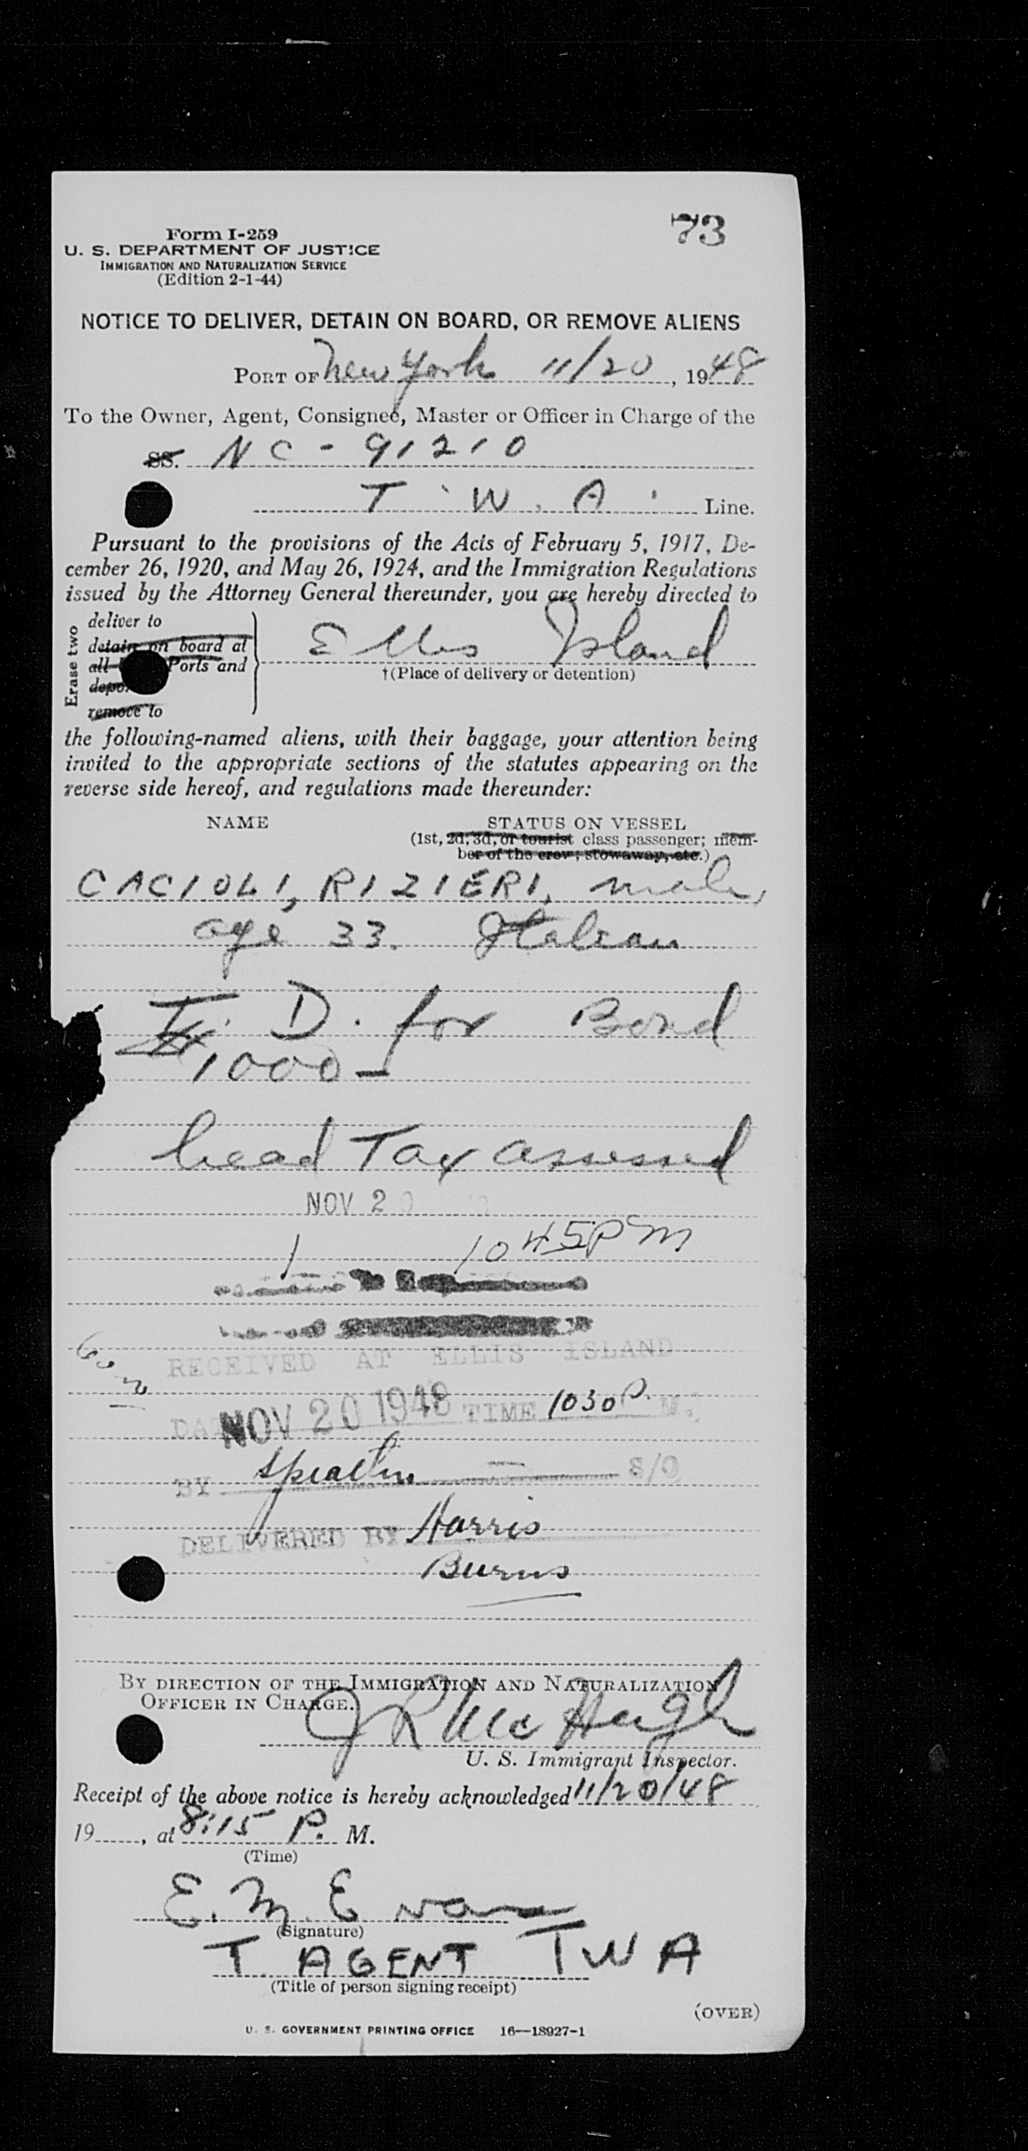 73
Form I-259
U. S. DEPARTMENT OF JUSTICE
IMMIGRATION AND NATURALIZATION SERVICE
(Edition 2-1-44)
NOTICE TO DELIVER, DETAIN ON BOARD, OR REMOVE ALIENS
PORT OF New York 11/20, 1948
To the Owner, Agent, Consignee, Master or Officer in Charge of the
SS. NC-91210
T.W.A. Line.
Pursuant to the provisions of the Acts of February 5, 1917, De-
cember 26, 1920, and May 26, 1924, and the Immigration Regulations
issued by the Attorney General thereunder, you are hereby directed to
Erase two
deliver to
detain on board at
all Ports and
remove to
Ellis Island
†(Place of delivery or detention)
the following-named aliens, with their baggage, your attention being
invited to the appropriate sections of the statutes appearing on the
reverse side hereof, and regulations made thereunder:
NAME
STATUS ON VESSEL
(1st, 2d, 3d, or tourist class passenger; mem-
ber of the crew; stowaway, etc.)
CACIOLI, RIZIERI, male,
age 33. Italian
T. D. for Bond
1000–
head Tax assessed
NOV 20
1 1045PM
RECEIVED AT ELLIS ISLAND
NOV 20 1948 TIME 1030 P. M.
BY
DELIVERED BY Harris
Burns
BY DIRECTION OF THE IMMIGRATION AND NATURALIZATION
OFFICER IN CHARGE.
J R McHugh
U. S. Immigrant Inspector.
Receipt of the above notice is hereby acknowledged 11/20/48
19....., at 8:15 P. M.
(Time)
E. M. Evans
(Signature)
T. AGENT TWA
(Title of person signing receipt)
(OVER)
U. S. GOVERNMENT PRINTING OFFICE 16—18927-1